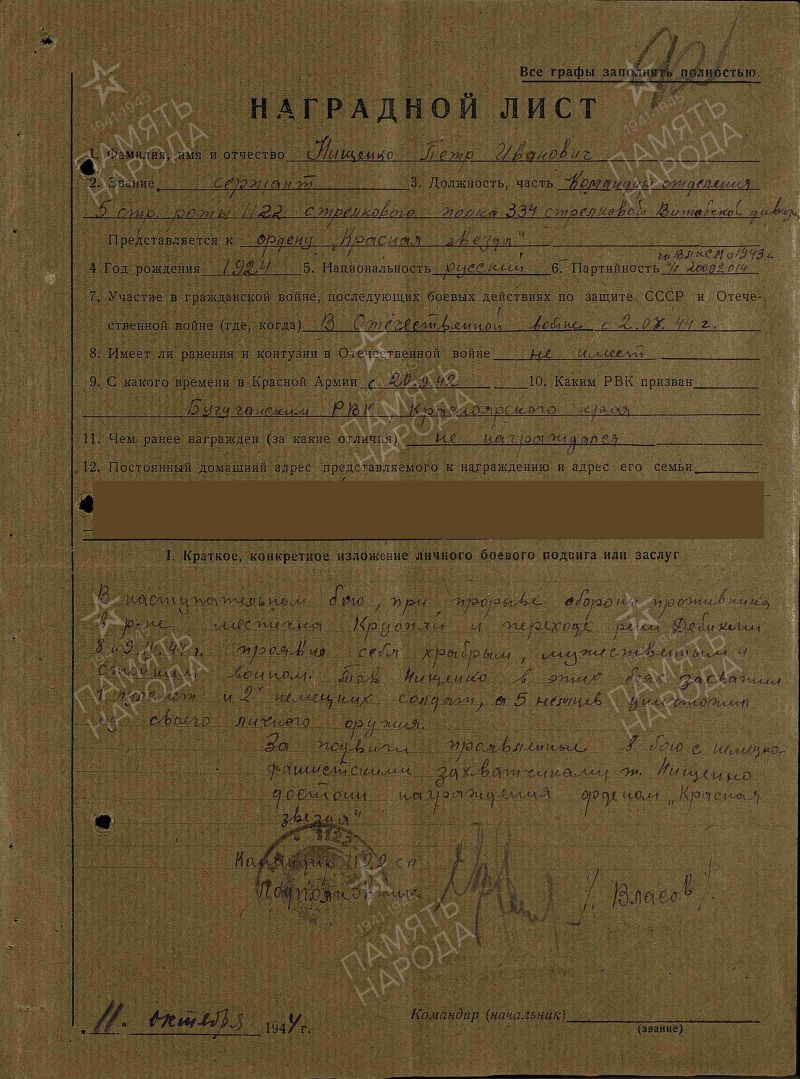 Все графы заполнять полностью.
НАГРАДНОЙ ЛИСТ
1. Фамилия, имя и отчество Нищенко Петр Иванович
2. Звание сержант 3. Должность, часть Командир отделения
5 стр. роты 1122 стрелкового полка 334 стрелковой Витебской дивиз.
Представляется к ордену „Красная звезда"
чл. ВЛКСМ с 1943 г.
4 Год рождения 1924 5. Национальность русский 6. Партийность 20092014
7. Участие в гражданской войне, последующих боевых действиях по защите СССР и Отече-
ственной войне (где, когда) В Отечественной войне с 2. 44 г.
8. Имеет ли ранения и контузии в Отечественной войне не имеет
9. С какого времени в Красной Армии с 20.9.42 10. Каким РВК призван
Бугучанским РВК, Красноярского края
11. Чем ранее награжден (за какие отличия) не награждался
12. Постоянный домашний адрес представляемого к награждению и адрес его семьи
I. Краткое, конкретное изложение личного боевого подвига или заслуг
В наступательном бою, при прорыве обороны противника
в р-не местечка и переходе реки
8 и 9. 44 г. проявил себя храбрым, мужественным и
стойким воином. Тов Нищенко в этих боях захватил
1 пулемет и 2х немецких солдат, а 5 немцев уничтожил
из своего личного оружия.
За подвиги проявленные в бою с немецко-
фашистскими захватчиками т. Нищенко
достоин награждения орденом „Красная
звезда"
Командир 1122 сп
Подполковник /Власов/
11. октября 1944 г.
Командир (начальник)
(звание)
ПАМЯТЬ НАРОДА
1941-1945